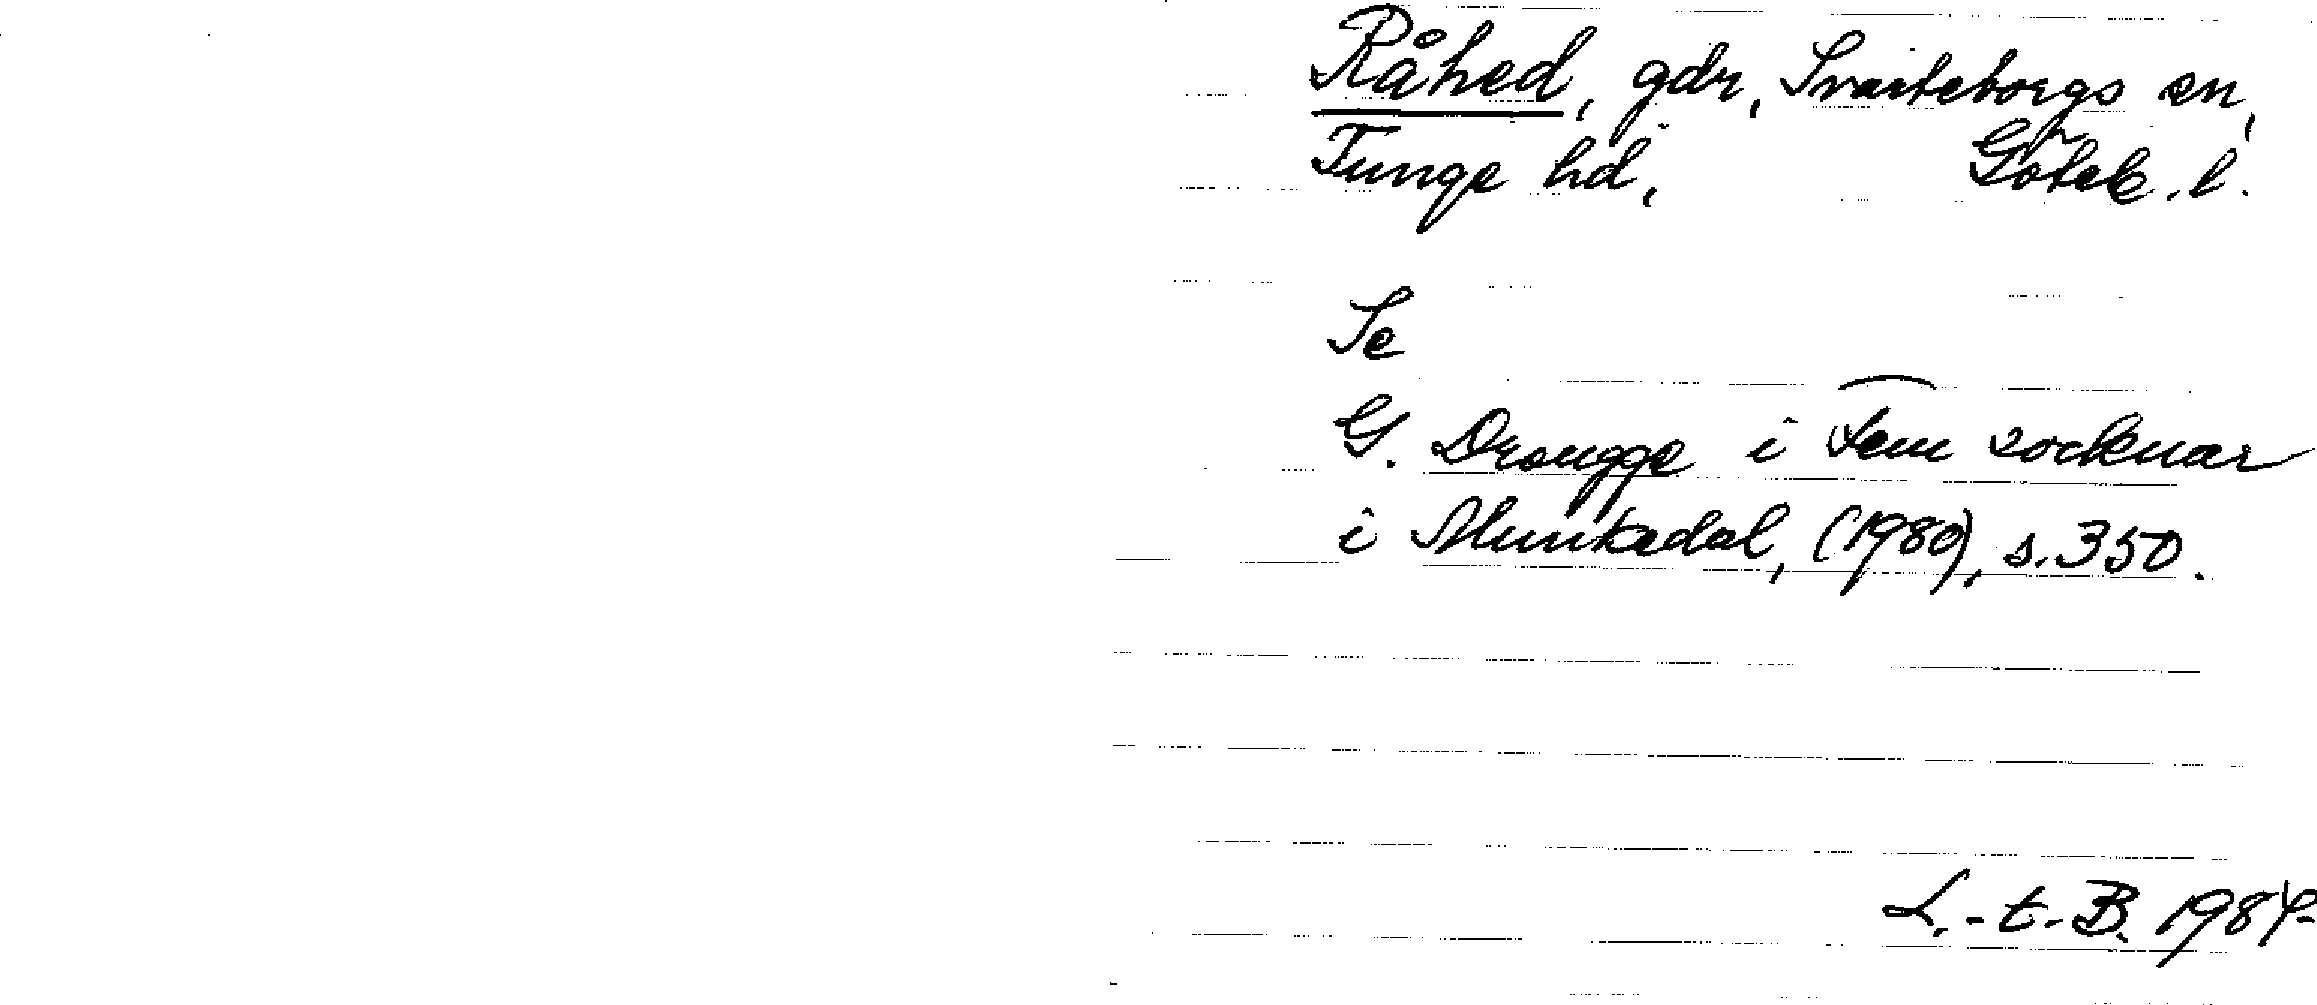 Råhed, gdr, Svarteborgs sn,
Tunge hd, Göteb. l.
Se
G. Drougge i Fem socknar
i Munkedal, (1980), s. 350.
L.-t. B. 1984